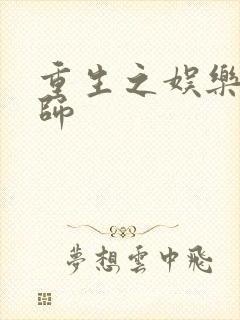 重生之娱樂
師
夢想雲中飛